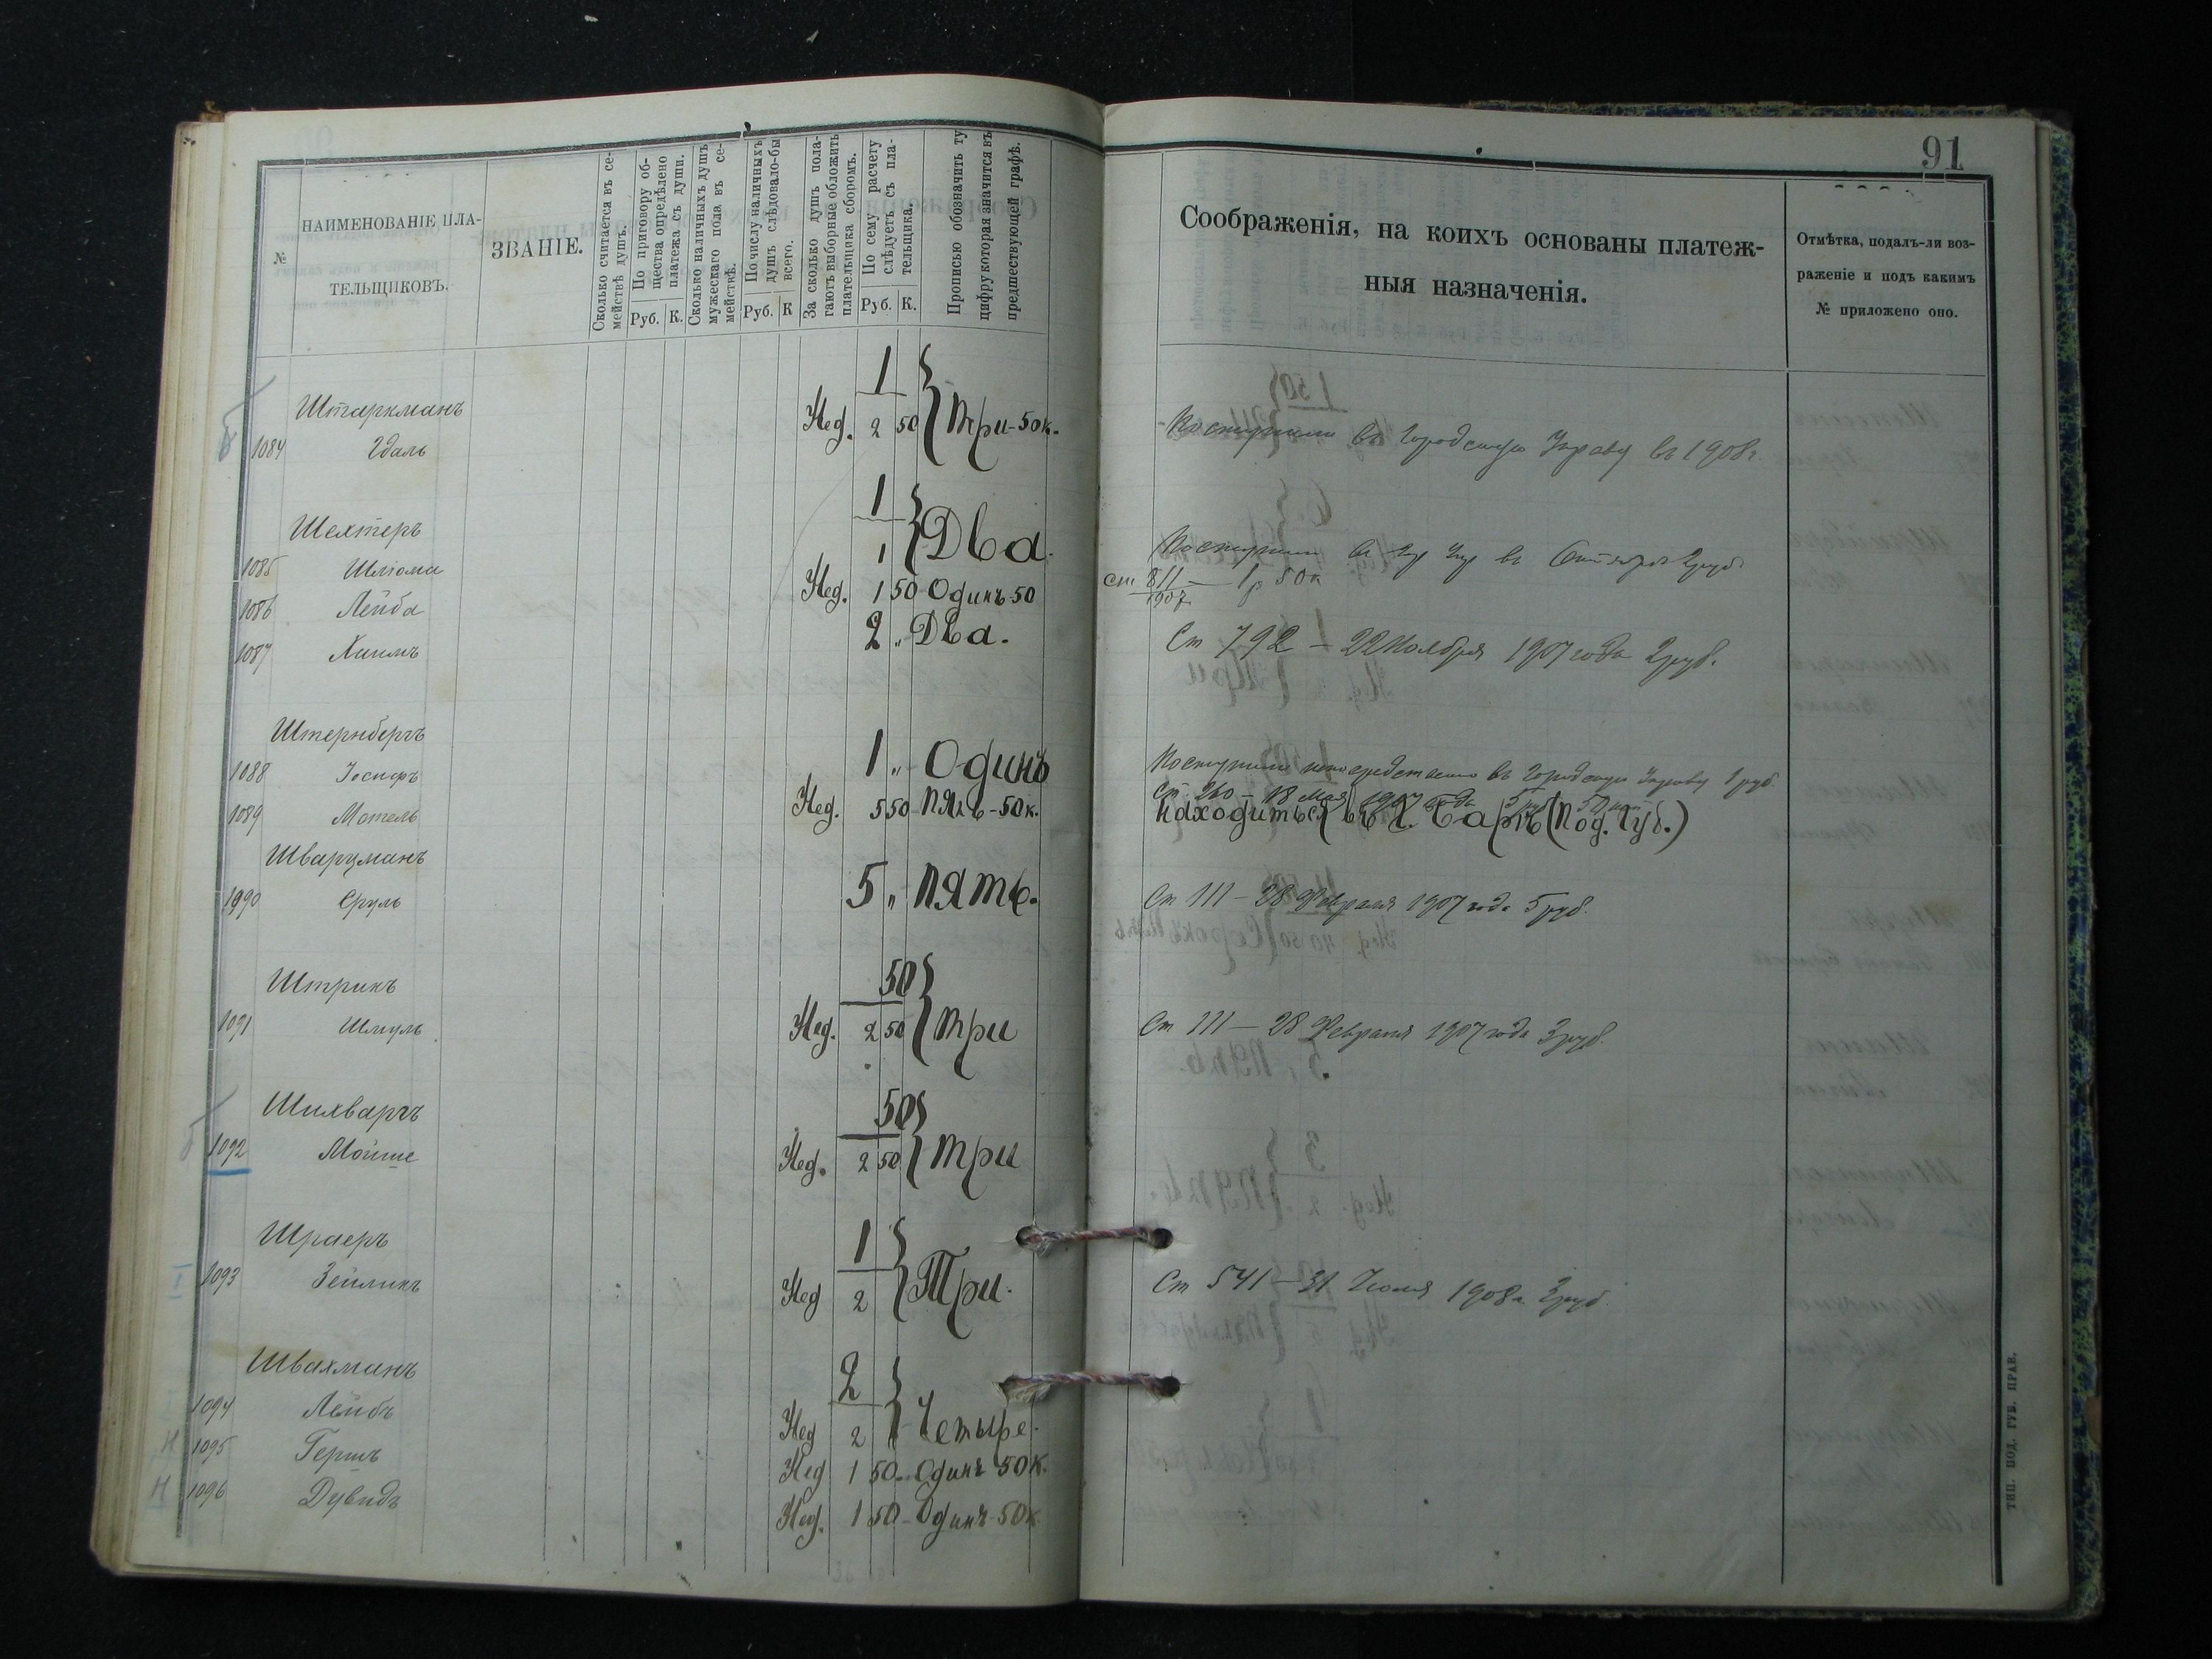 91
№
НАИМЕНОВАНІЕ ПЛА-
ТЕЛЬЩИКОВЪ.
ЗВАНІЕ.
Сколько считается въ се-
мействѣ душъ.
По приговору об-
щества опредѣлено
платежа съ души.
Руб. К.
Сколько наличныхъ душъ
мужескаго пола въ се-
мействѣ.
По числу наличныхъ
душъ слѣдовало-бы
всего.
Руб. К
За сколько душъ пола-
гаютъ выборные обложить
плательщика сборомъ.
По сему расчету
слѣдуетъ съ пла-
тельщика.
Руб. К.
Прописью обозначить ту
цифру которая значится въ
предшествующей графѣ.
Соображенія, на коихъ основаны платеж-
ныя назначенія.
Отмѣтка, подалъ-ли воз-
раженіе и подъ какимъ
№ приложено оно.
Штаркманъ
1
1084 Гдаль Нед. 2 50 Три-50к. Поступили въ Городскую Управу въ 1908г.
Шехтеръ
1
1085 Шліома 1 Два. Поступили въ
1086 Лейба Нед. 1 50 Одинъ-50 ст 811 1907 — 1р 50к
1087 Хаимъ 2 „ Два. Ст 792 — 22 Ноября 1907 года 2руб.
Штернбергъ
1088 Іосифъ 1 „ Одинъ Поступили непосредственно въ Городскую Управу 1 руб.
1089 Мотель Нед. 5 50 Пять-50к. Ст. 260 — 18 Мая 1907 года 5 руб 50 коп
Находиться въ г. Баръ (Под. Губ.)
Шварцманъ
1990 Сруль 5 „ Пять. Ст 111 — 28 Февраля 1907 года 5руб.
Штрикъ
50
1091 Шмуль Нед. 2 50 Три Ст 111 — 28 Февраля 1907 года 3руб.
Шихваргъ
50
1092 Мойше Нед. 2 50 Три
Шраеръ
1
1093 Зейликъ Нед 2 Три. Ст 541 — 31 Іюля 1908г 3руб
Швахманъ
2
1094 Лейбъ Нед 2 Четыре.
Н 1095 Гершъ Нед 1 50 Одинъ 50к.
Н 1096 Дувидъ Нед. 1 50 Одинъ-50к
ТИП. ПОД. ГУБ. ПРАВ.